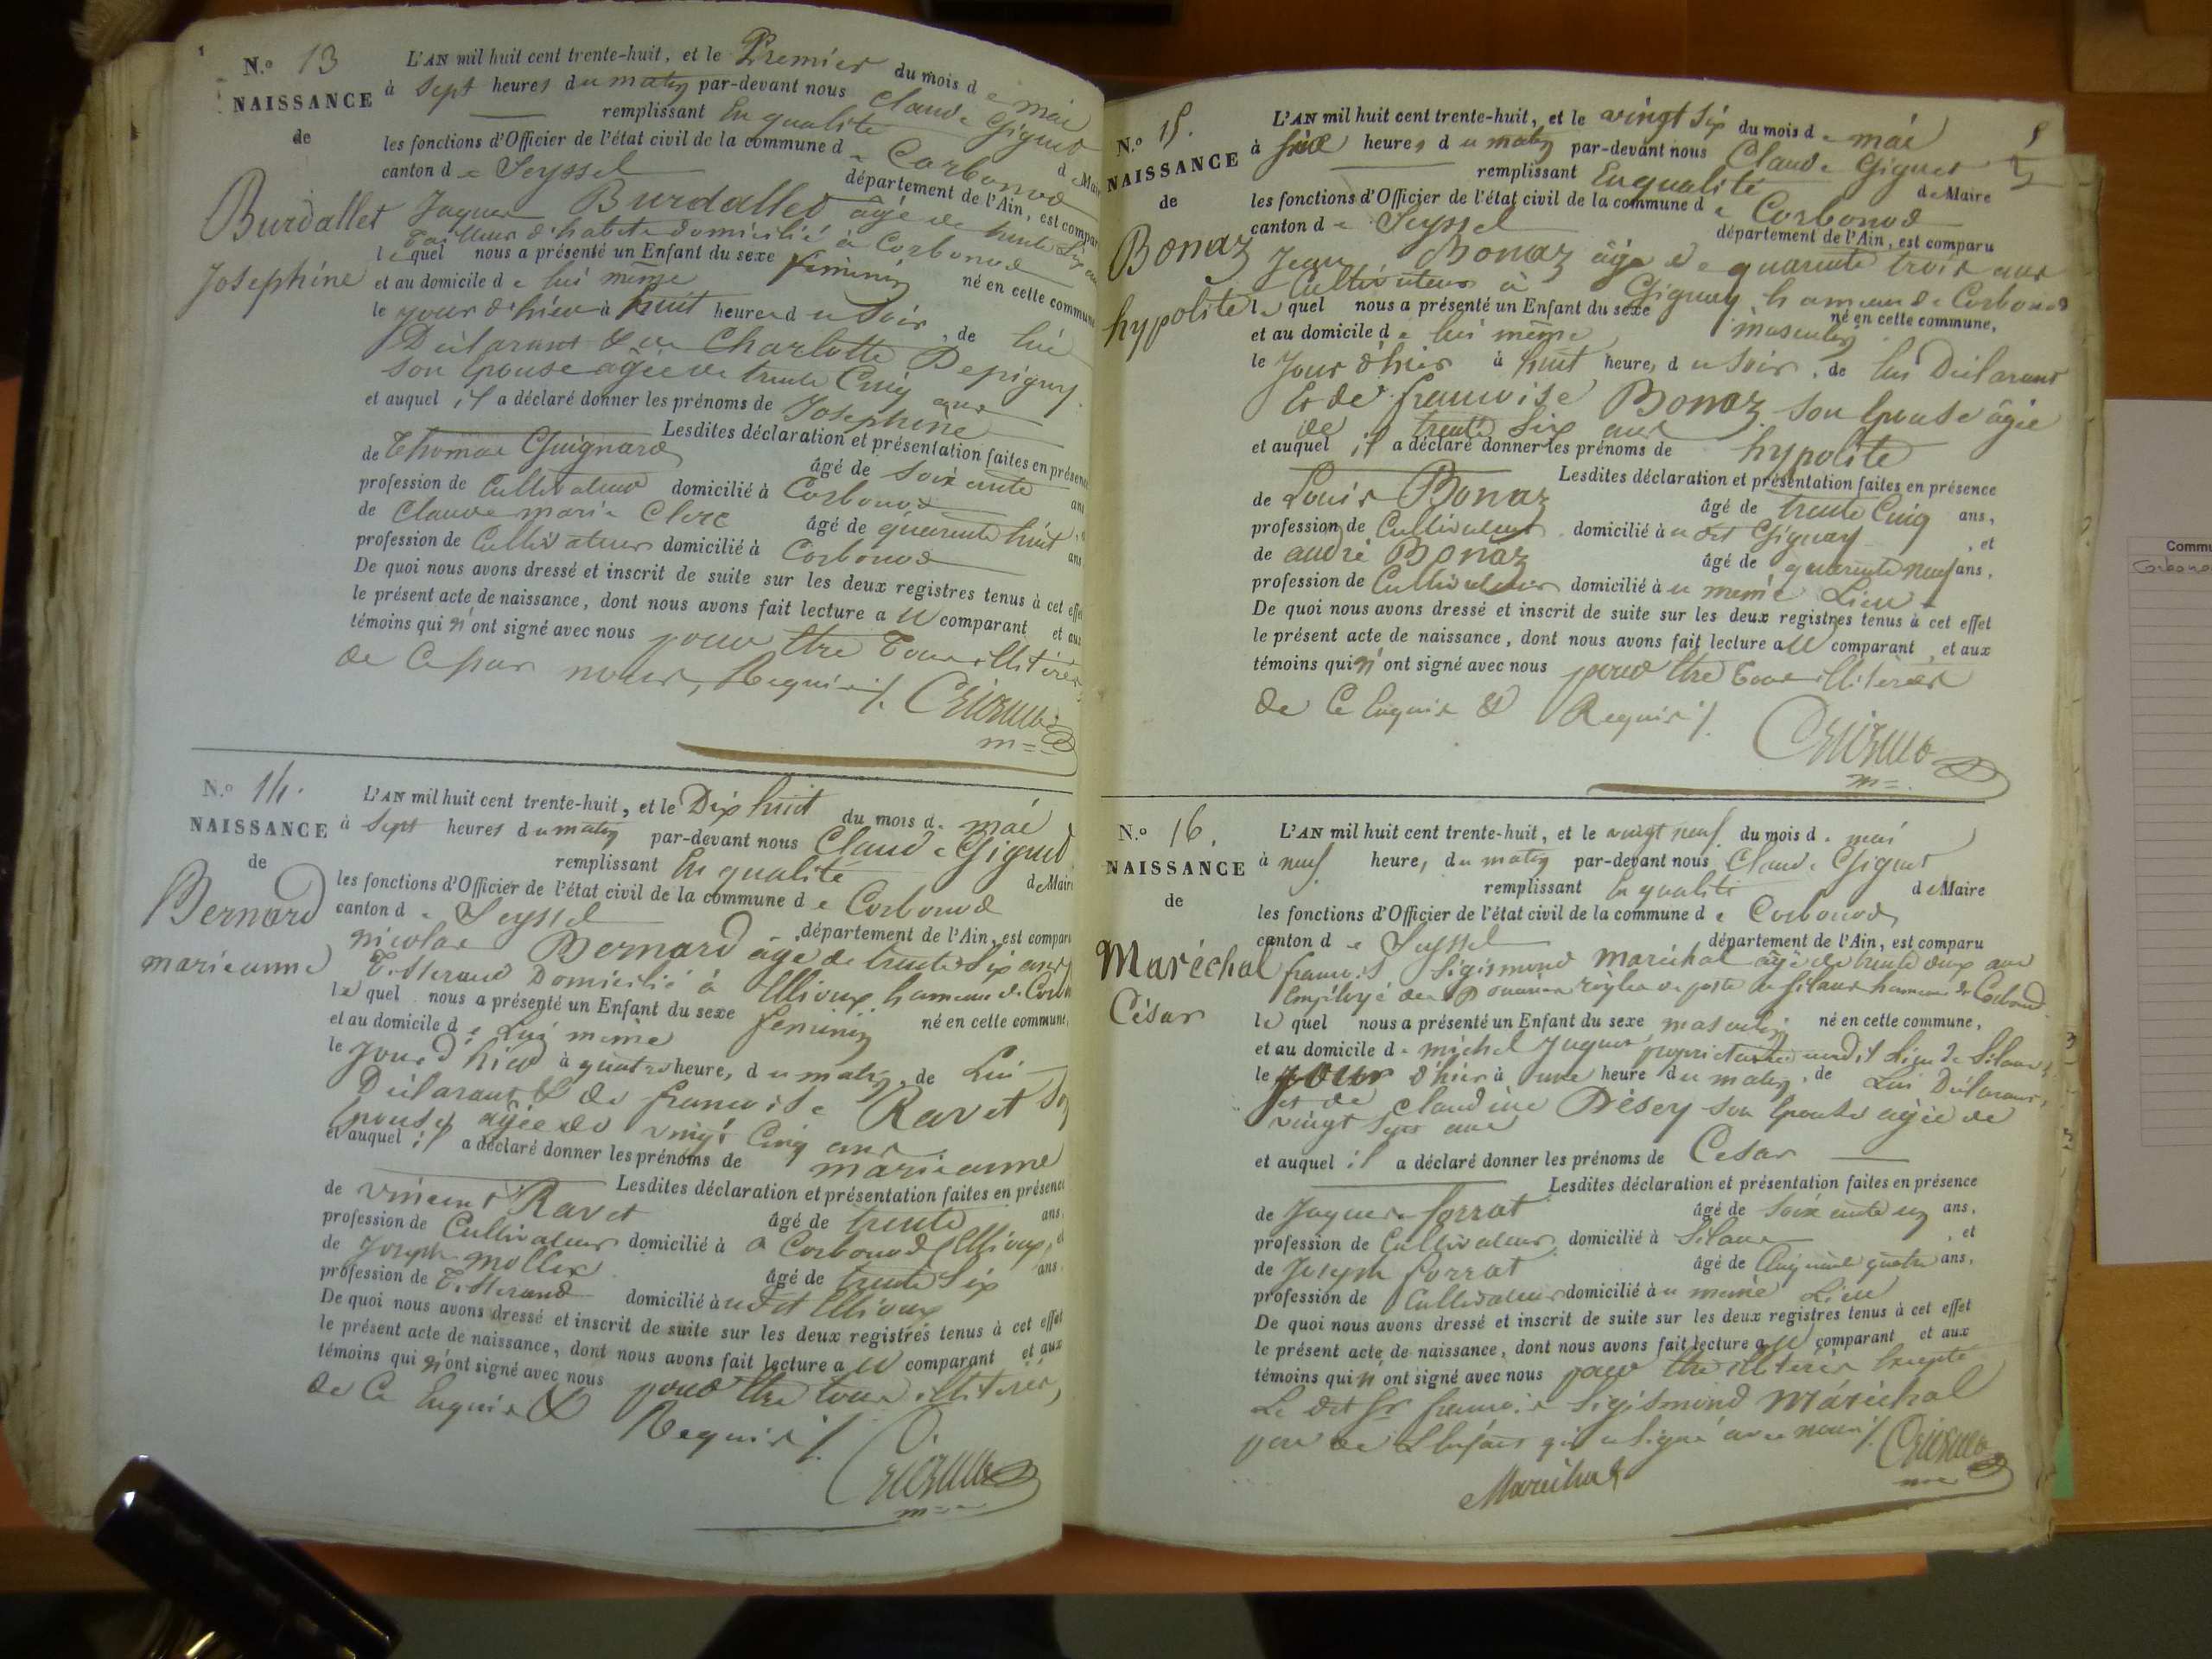 N.o 13
NAISSANCE
de
Burdallet
Josephine
L'AN mil huit cent trente-huit, et le Premier du mois de mai
à Sept heures du matin par-devant nous Claude Giguet
remplissant En qualité de Maire
les fonctions d'Officier de l'état civil de la commune de Corbonod
canton de Seyssel département de l'Ain, est compar
Jaques Burdallet âgé de trente Six ans
Tailleur d'habits domicilié à Corbonod
lequel nous a présenté un Enfant du sexe féminin né en cette commune
et au domicile de lui même
le jour d'hier à huit heures du Soir, de lui
Déclarant & de Charlotte Depigny
son Epouse agée de trente Cinq ans
et auquel il a déclaré donner les prénoms de Josephine
Lesdites déclaration et présentation faites en présence
de Thomas Guignard âgé de Soixante ans
profession de Cultivateur domicilié à Corbonod
de Claude marie Clerc âgé de quarente huit ans
profession de Cultivateur domicilié à Corbonod
De quoi nous avons dressé et inscrit de suite sur les deux registres tenus à cet effet
le présent acte de naissance, dont nous avons fait lecture a u comparant et aux
témoins qui n'ont signé avec nous pour être Tous illitérés
de Ce par nous, Requis ·/.
N.o 14.
NAISSANCE
de
Bernard
marieanne
L'AN mil huit cent trente-huit, et le Dix huit du mois de mai
à Sept heures du matin par-devant nous Claude Giguet
remplissant En qualité de Maire
les fonctions d'Officier de l'état civil de la commune de Corbonod
canton de Seyssel département de l'Ain, est compar
nicolas Bernard âgé de trente Six ans
Tisserand Domicilié à Ellioux hameau de Corbo
lequel nous a présenté un Enfant du sexe feminin né en cette commune,
et au domicile de Lui même
le Jour d'hier à quatre heure, du matin, de Lui
Déclarant & de francoise Ravet Son
Epouse agée de vingt Cinq ans
et auquel il a déclaré donner les prénoms de marieanne
Lesdites déclaration et présentation faites en présence
de vincent Ravet âgé de trente ans
profession de Cultivateur domicilié à a Corbonod Ellioux, et
de Joseph mollex âgé de trente Six ans
profession de Tisserand domicilié à u dit Ellioux
De quoi nous avons dressé et inscrit de suite sur les deux registres tenus à cet effet
le présent acte de naissance, dont nous avons fait lecture a u comparant et aux
témoins qui n'ont signé avec nous pour être tous illitérés,
de Ce Enquis & Requis ·/.
N.o 15.
NAISSANCE
de
Bonaz
hypolite
5
L'AN mil huit cent trente-huit, et le vingt Six du mois de mai
à Six heures du matin par-devant nous Claude Giguet
remplissant En qualité de Maire
les fonctions d'Officier de l'état civil de la commune de Corbonod
canton de Seyssel département de l'Ain, est comparu
Jean Bonaz âgé de quarente trois ans
Cultivateur à Gignay hameau de Corbonod
lequel nous a présenté un Enfant du sexe masculin né en cette commune,
et au domicile de lui même
le Jour d'hier à huit heure, du Soir, de lui Déclarant
Et de francoise Bonaz son Epouse âgée
de trente Six ans
et auquel il a déclaré donner les prénoms de hypolite
Lesdites déclaration et présentation faites en présence
de Louis Bonaz âgé de trente Cinq ans,
profession de Cultivateur domicilié à u dit Gignay, et
de andré Bonaz âgé de quarente neuf ans,
profession de Cultivateur domicilié à u même Lieu
De quoi nous avons dressé et inscrit de suite sur les deux registres tenus à cet effet
le présent acte de naissance, dont nous avons fait lecture a u comparant, et aux
témoins qui n'ont signé avec nous pour être Tous illitérés
de Ce Enquis & Requis ·/.
N.o 16.
NAISSANCE
de
Maréchal
César
L'AN mil huit cent trente-huit, et le vingt neuf du mois de mai
à neuf heure, du matin par-devant nous Claude Giguet
remplissant En qualité de Maire
les fonctions d'Officier de l'état civil de la commune de Corbonod
canton de Seyssel département de l'Ain, est comparu
francois Sigismond maréchal âgé de trente deux ans
Employé des Douanes de poste à Silans hameau de Corbonod
lequel nous a présenté un Enfant du sexe masculin né en cette commune,
et au domicile de michel Juguet propriétaire audit Lieu de Silans
le jour d'hier à une heure du matin, de Lui Déclarant,
et de Claudine Désey son Epouse agée de
vingt Sept ans
et auquel il a déclaré donner les prénoms de Cesar
Lesdites déclaration et présentation faites en présence
de Jaques Sorrat âgé de Soixante un ans,
profession de Cultivateur domicilié à Silans, et
de Joseph Sorrat âgé de Cinquante quatre ans,
profession de Cultivateur domicilié à u même Lieu
De quoi nous avons dressé et inscrit de suite sur les deux registres tenus à cet effet
le présent acte de naissance, dont nous avons fait lecture a u comparant et aux
témoins qui n'ont signé avec nous pour être illitérés Excepté
Le dit Sr francois Sigismond Maréchal
pere de L'Enfant qui a Signé avec nous ·/.
Maréchal
Commu
Corbono